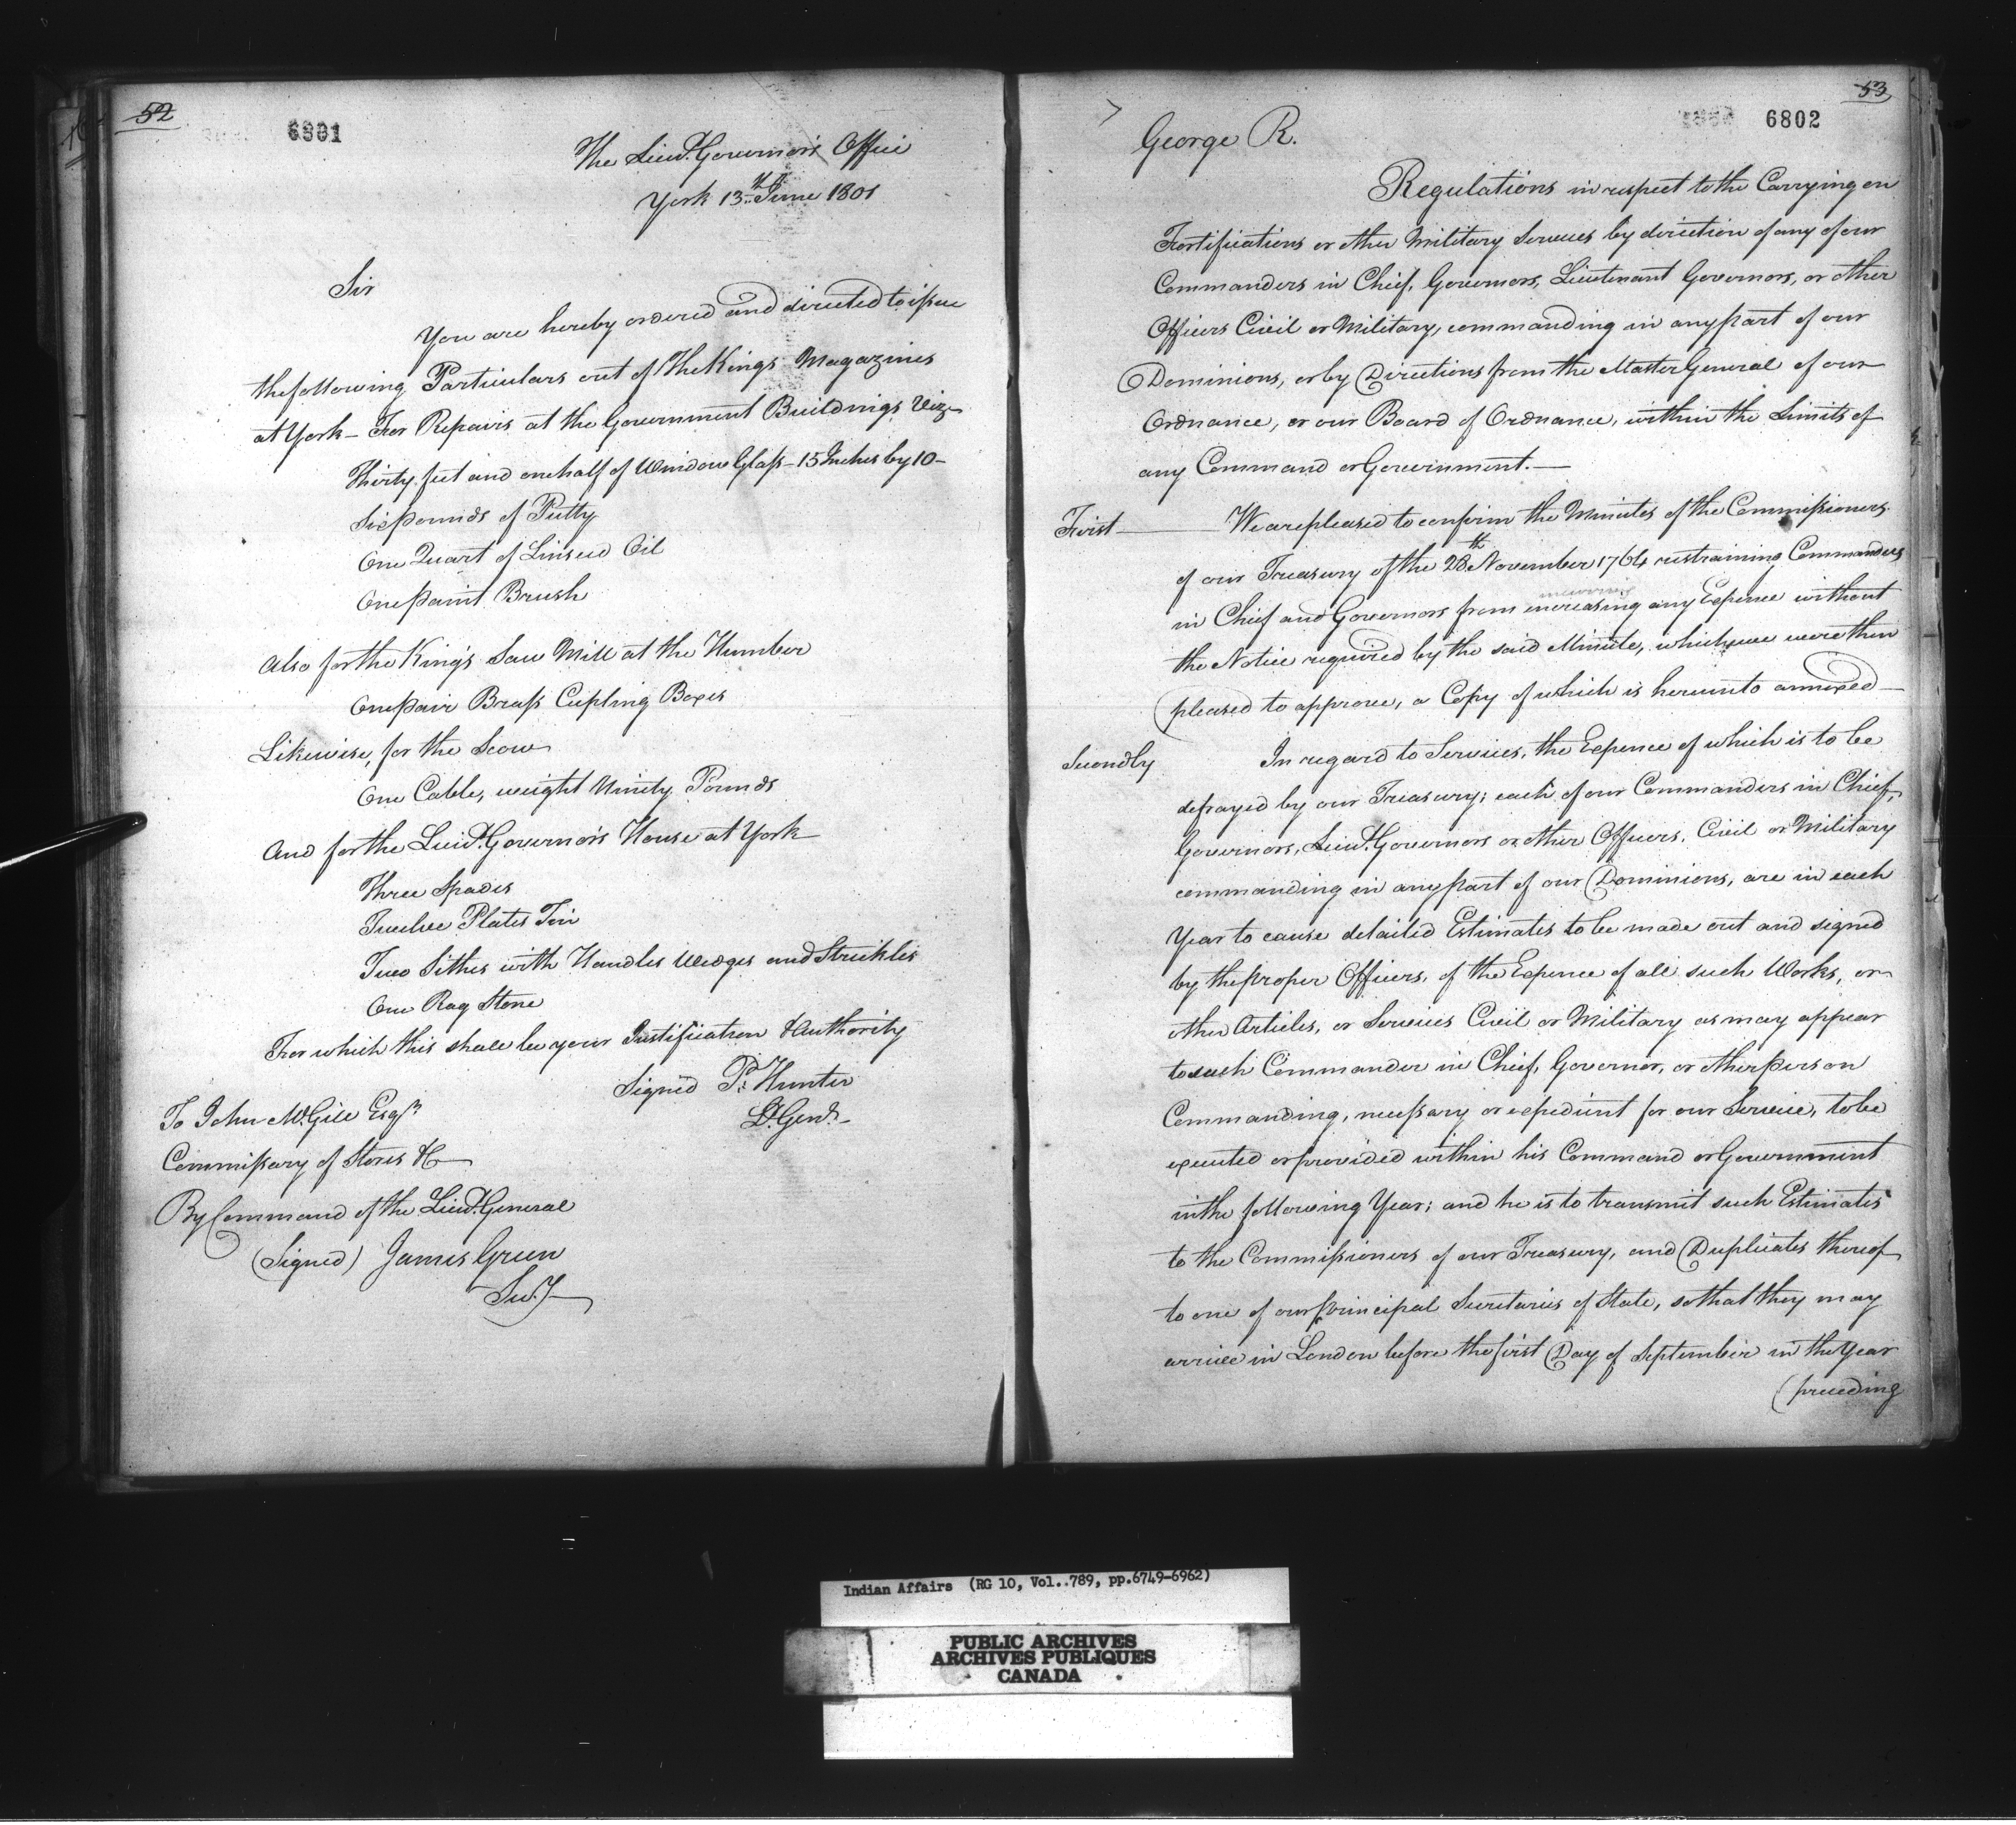 52
6801
The Lieut. Governor's Office
York 13th June 1801
Sir
You are hereby ordered and directed to issue
the following Particulars out of The Kings Magazines
at York – For Repairs at the Government Buildings Viz.
Thirty feet and one half of Window Glass – 15 Inches by 10 –
Six pounds of Putty
One Quart of Linseed Oil
One paint Brush
Also for the King's Saw Mill at the Humber
One pair Brass Cupling Boxes
Likewise, for the Scow
One Cable, weight Ninety Pounds
And for the Lieut. Governor's House at York
Three Spades
Twelve Plates Tin
Two Sithes with Handles Wedges and Strickles
One Rag Stone
For which this shall be your Justification & Authority
Signed P. Hunter
Lt. Genl. –
To John McGill Esqr.
Commissary of Stores &c
By Command of the Lieut. General
(Signed) James Green
Secy.
53
6802
George R.
Regulations in respect to the Carrying on
Fortifications or other Military Services by direction of any of our
Commanders in Chief, Governors, Lieutenant Governors, or other
Officers Civil or Military, commanding in any part of our
Dominions, or by Directions from the Master General of our
Ordnance, or our Board of Ordnance, within the Limits of
any Command or Government. —
First — We are pleased to confirm the Minutes of the Commissioners
of our Treasury of the 28th November 1764 restraining Commanders
incurring
in Chief and Governors from increasing any Expence without
the Notice required by the said Minute, which we were then
pleased to approve, a Copy of which is hereunto annexed —
Secondly In regard to Services, the Expence of which is to be
defrayed by our Treasury; each of our Commanders in Chief,
Governors, Lieut. Governors or other Officers, Civil or Military
commanding in any part of our Dominions, are in each
Year to cause detailed Estimates to be made out and signed
by the proper Officers, of the Expence of all such Works, or
other Articles, or Services Civil or Military as may appear
to such Commander in Chief, Governor, or other person
Commanding, necessary or expedient for our Service, to be
executed or provided within his Command or Government
in the following Year; and he is to transmit such Estimates
to the Commissioners of our Treasury, and Duplicates thereof
to one of our principal Secretaries of State, so that they may
arrive in London before the first Day of September in the Year
preceding
Indian Affairs (RG 10, Vol..789, pp.6749-6962)
PUBLIC ARCHIVES
ARCHIVES PUBLIQUES
CANADA